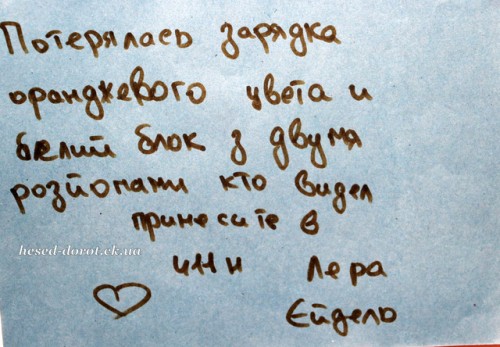 Потерялась зарядка
оранджевого цвета и
белий блок з двумя
розйомами кто видел
принесите в
411н Лера
Єйдель
hesed-dorot.ck.ua